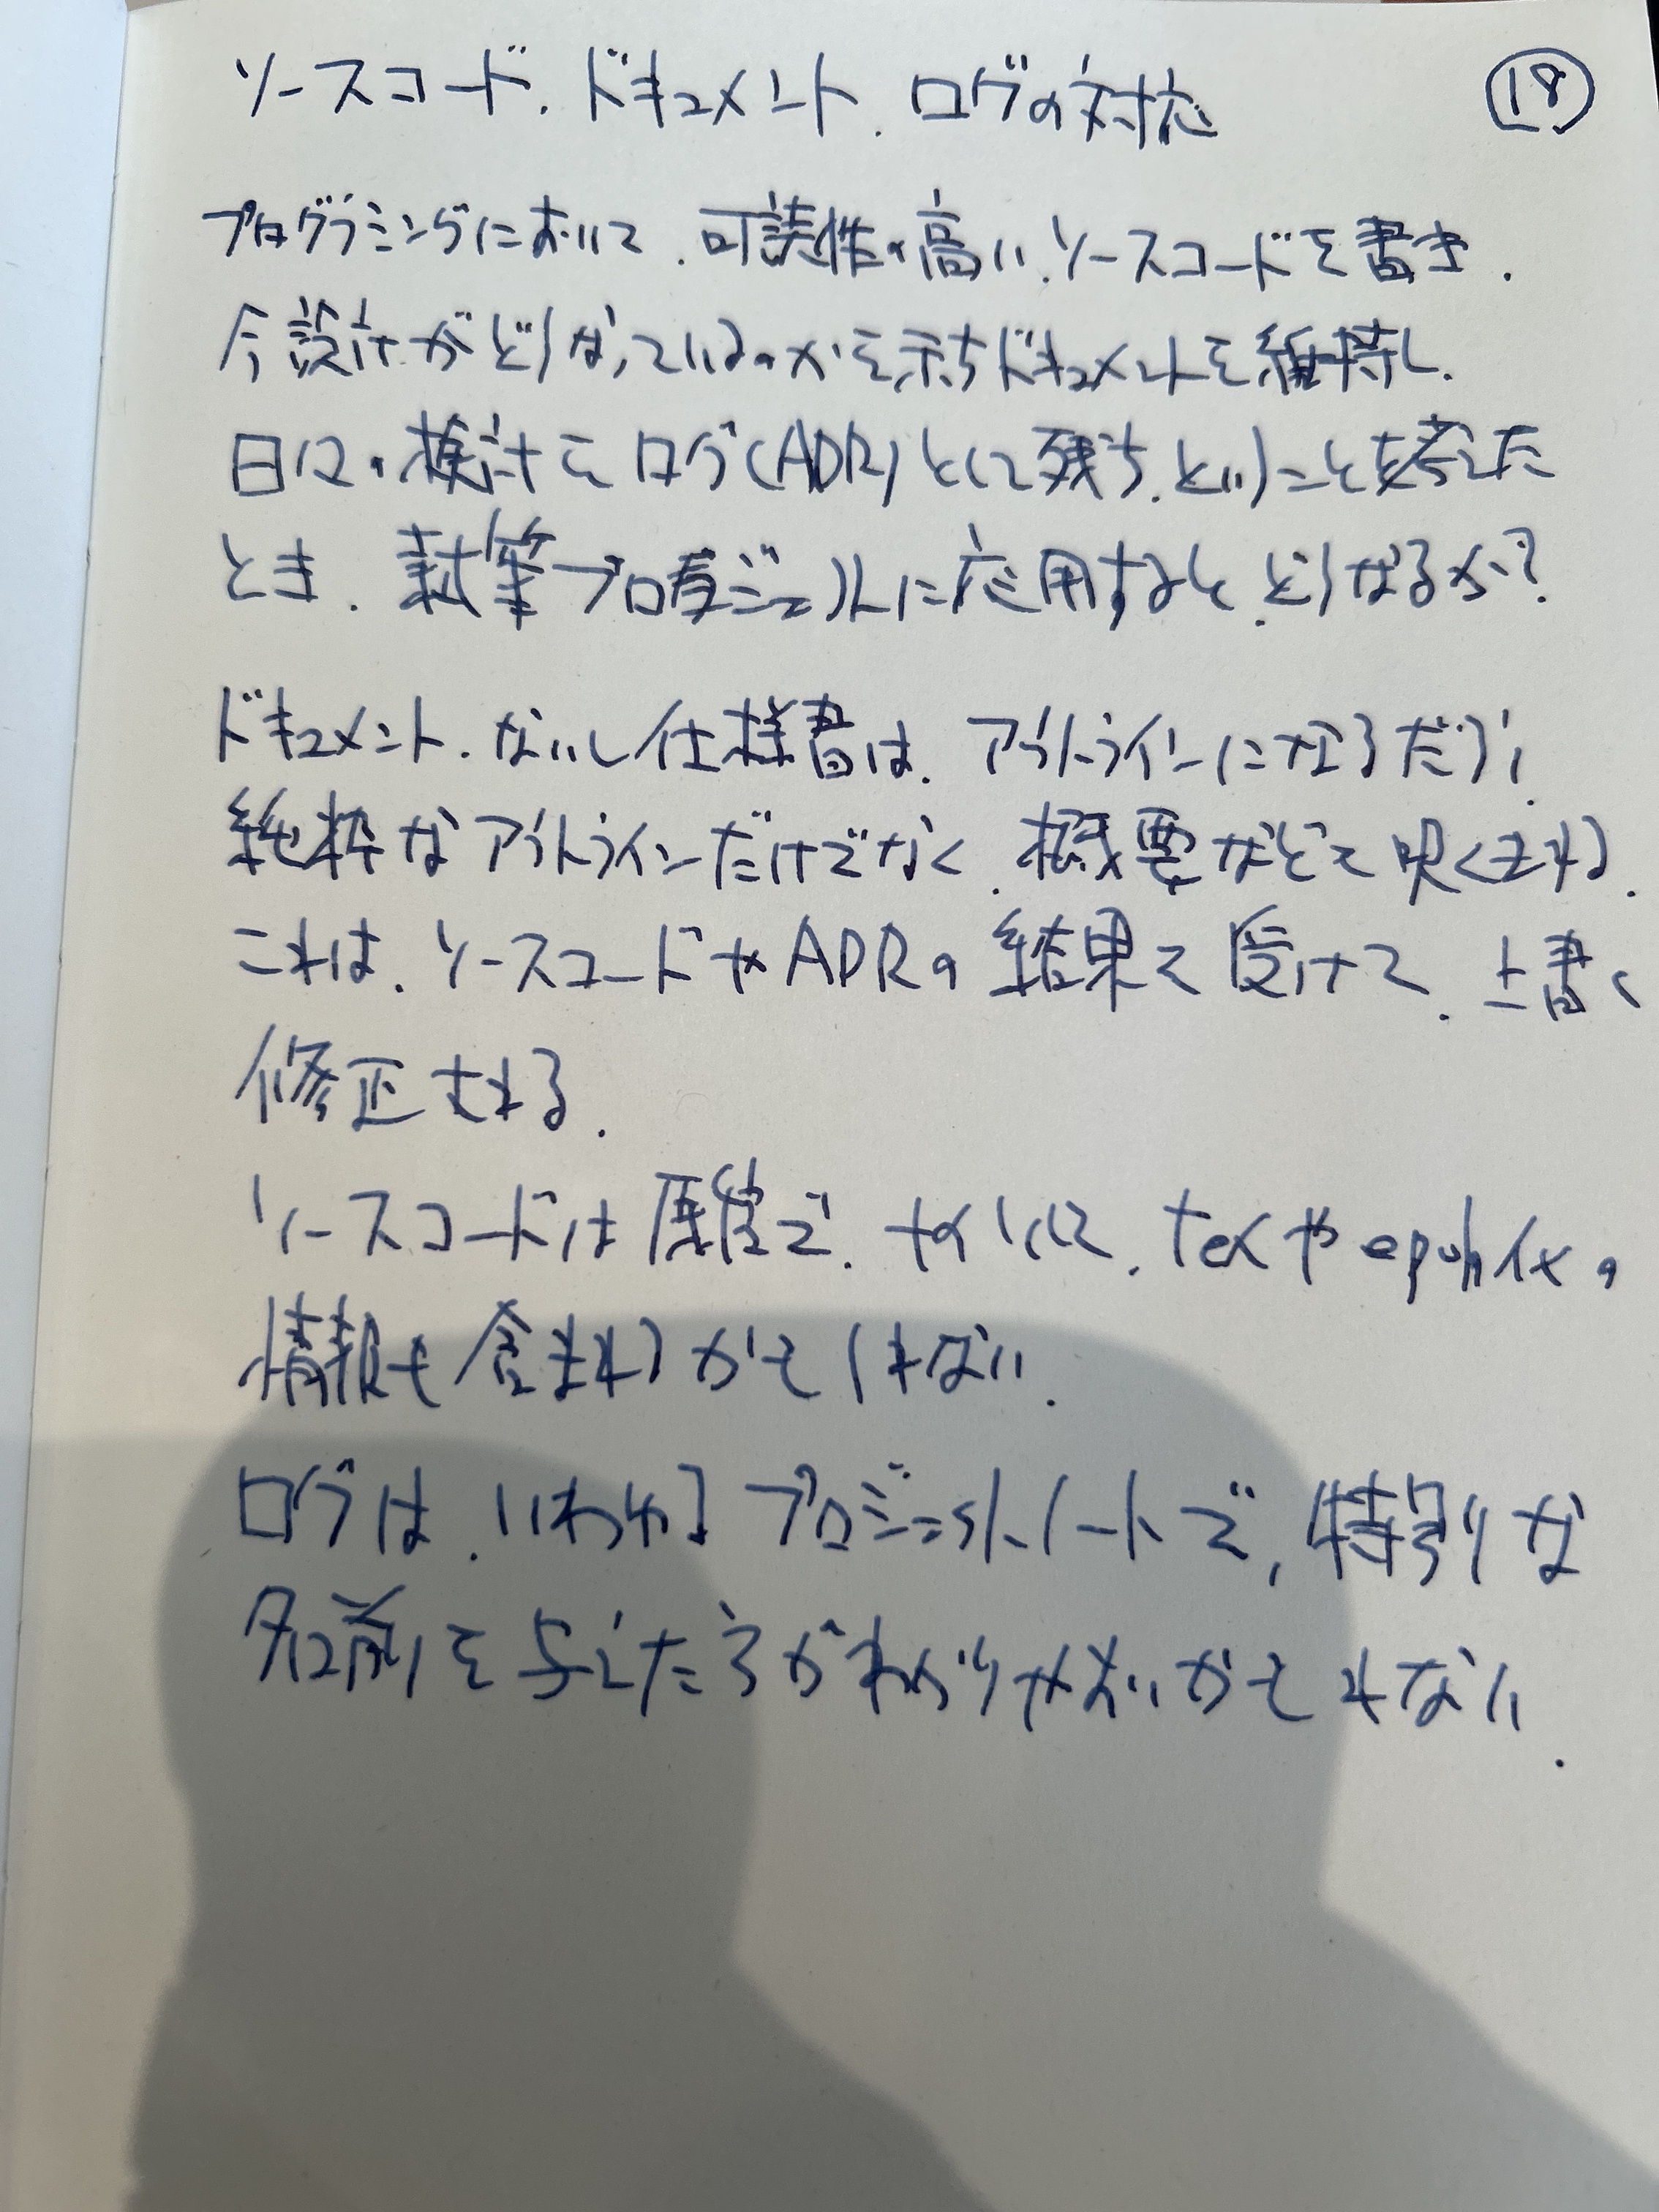 ソースコード、ドキュメント、ログの対応
⑱
プログラミングにおいて、可読性の高い、ソースコードを書き、
今設計がどうなっているのかを示すドキュメントを維持し、
日々の検討をログ(ADR)として残す、ということを考えた
とき、執筆プロジェクトに応用すると、どうなるか?
ドキュメント、ないし仕様書は、アウトラインになるだろう。
純粋なアウトラインだけでなく、概要なども含まれる。
これは、ソースコードやADRの結果を受けて、上書く
修正される。
ソースコードは原稿で、 texやepub
情報も含まれるかもしれない。
ログは、いわゆるプロジェクトノートで、特別な
名前を与えたほうがわかりやすいかもしれない。